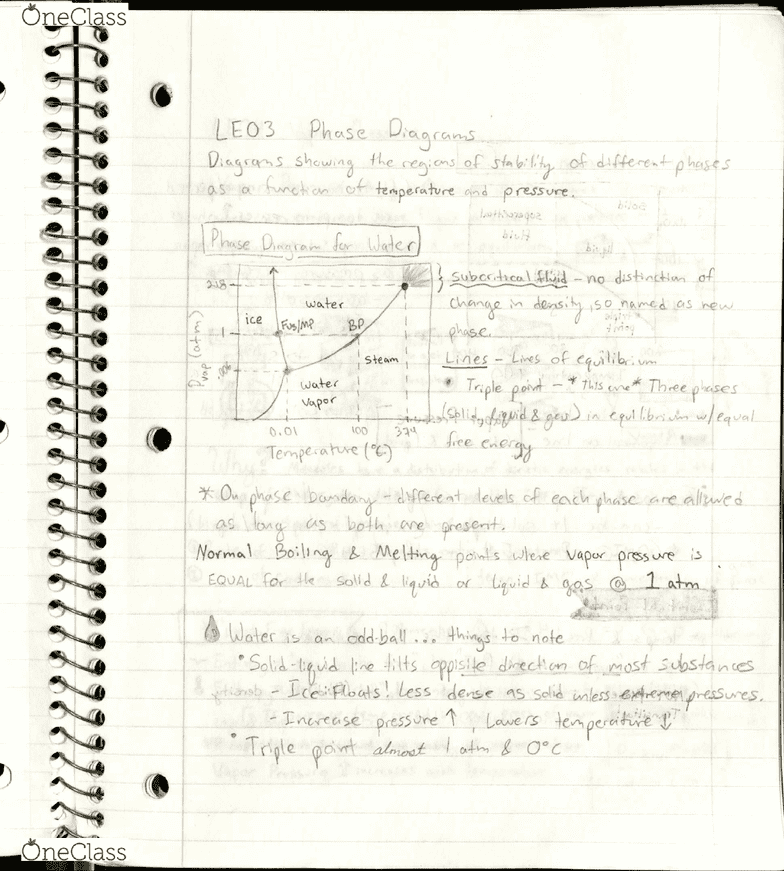 OneClass
LE03 Phase Diagrams
Diagrams showing the regions of stability of different phases
as a function of temperature and pressure.
Phase Diagram for Water
218
1
Pvap (atm)
ice
water
Fus/MP
BP
steam
water
vapor
0.01 100 374
Temperature (°C)
} subcritical fluid - no distinction of
change in density, so named as new
phase.
Lines - Lines of equilibrium
• Triple point - *This one* Three phases
(solid, liquid & gas) in equilibrium w/equal
free energy
* On phase bandary - different levels of each phase are allowed
as long as both are present.
Normal Boiling & Melting points where vapor pressure is
EQUAL for the solid & liquid or liquid & gas @ 1 atm.
Water is an odd-ball... things to note
• Solid-liquid line tilts oppisite direction of most substances
- Ice floats! Less dense as solid unless extreme pressures.
- Increase pressure ↑, Lowers temperature ↓
• Triple point almost 1 atm & 0°C
OneClass